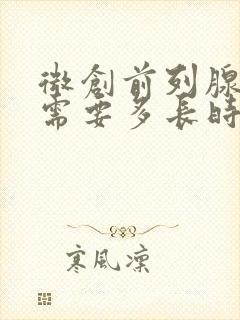 微創前列腺
需要多長時
寒風凜